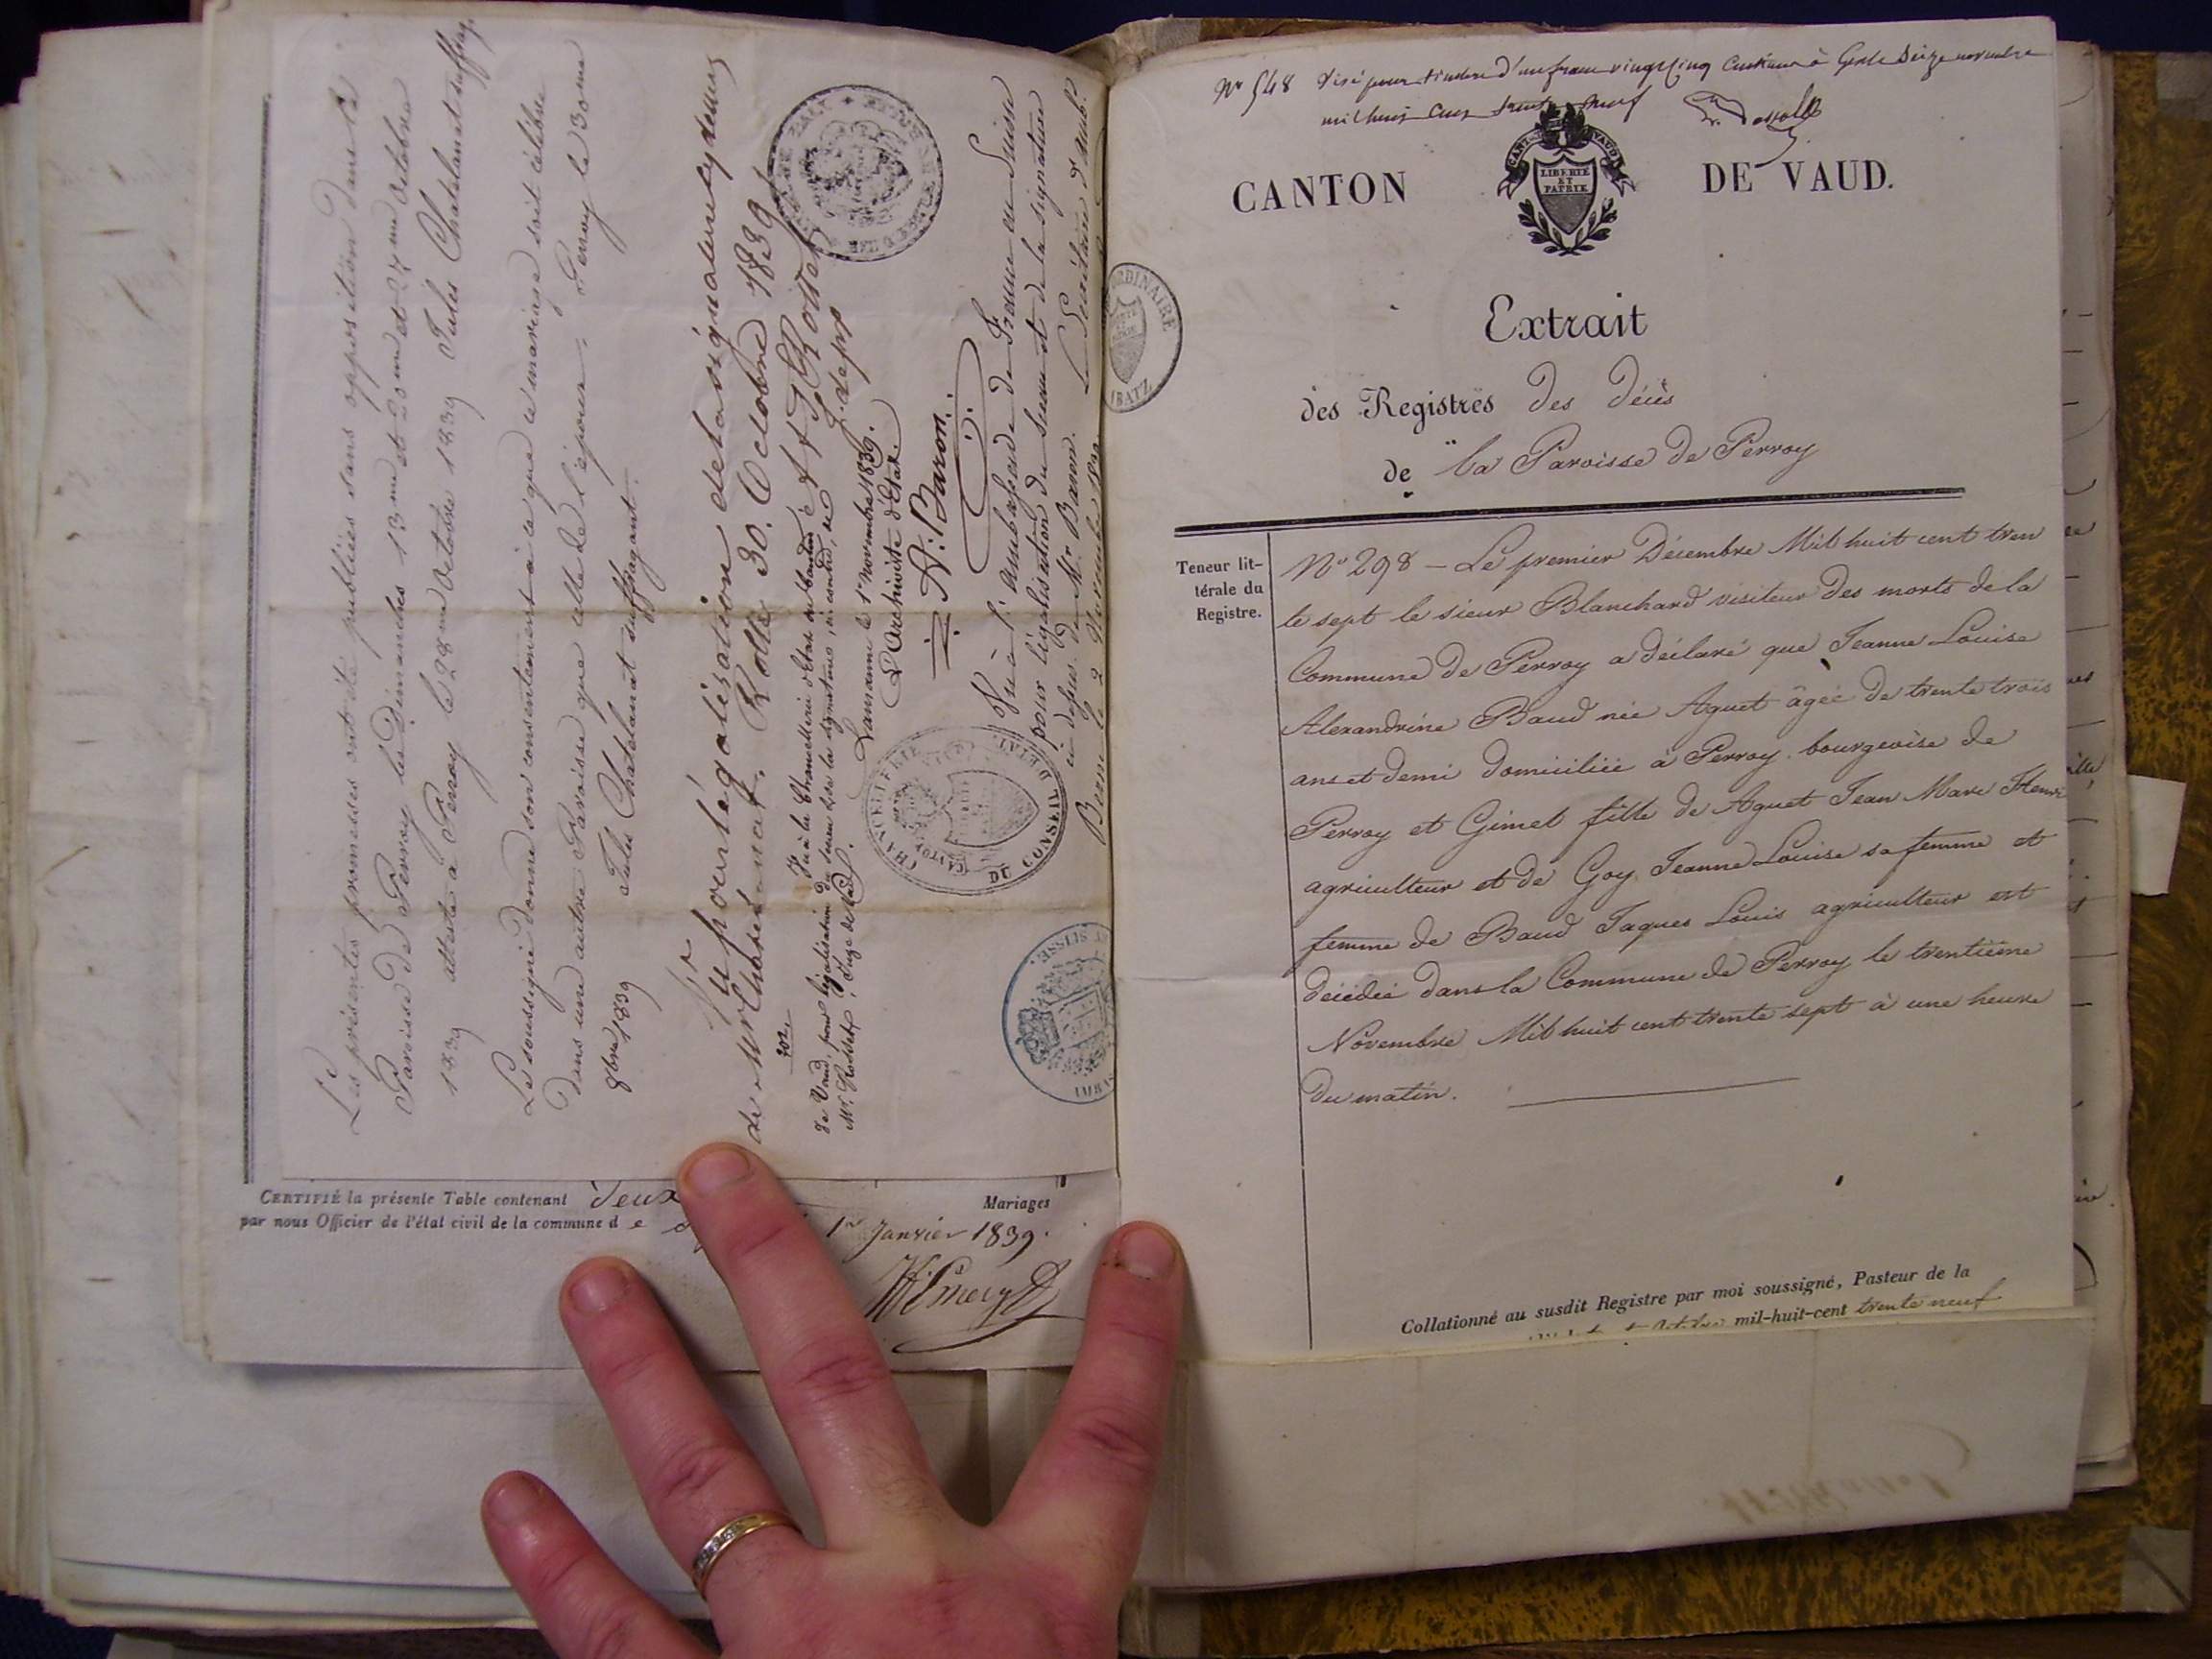 Les présentes promesses ont été publiées sans opposition dans la
Paroisse de Perroy les Dimanches 13me et 20me et 27me Octobre
1839 attesté à Perroy le 28me Octobre 1839 Jules Chatelanat suffrag.
Le soussigné donne son consentement à ce que ce mariage soit célébré
dans une autre Paroisse que celle de l'épouse. Perroy le 30me
8bre 1839 Jules Chatelanat suffragant.
Vu pour légalisation de la signature cy dessus
de Mr Chatelanat. Rolle 30. Octobre 1839
J. de paix
202.
Vu à la Chancellerie d'Etat du Canton
de Vaud, pour légalisation du sceau et de la signature, ci-contre, de
Mr. Rochat, Juge de Paix.
Lausanne le 1er Novembre 1839.
L'Archiviste d'Etat.
A. Baron.
Vu à l'Ambassade de France en Suisse
pour légalisation du sceau et de la signature
ci dessus de Mr Baron.
Berne le 2 Novembre 1839
Le Secrétaire d'Amb.
CHANCELLERIE
DU CONSEIL D'ETAT
CERTIFIÉ la présente Table contenant deux Mariages
par nous Officier de l'état civil de la commune de 1er Janvier 1839.
No 548 Visé pour timbre d'un franc vingt cinq centimes à Gex le Seize novembre
mil huit cent trente neuf
CANTON DE VAUD.
CANTON DE VAUD
LIBERTÉ
ET
PATRIE
Extrait
des Registres des décès
de la Paroisse de Perroy
Teneur lit-
térale du
Registre.
No 298 — Le premier Décembre Mil huit cent tren
te sept le sieur Blanchard visiteur des morts de la
Commune de Perroy a déclaré que Jeanne Louise
Alexandrine Baud née Aguet âgée de trente trois
ans et demi domiciliée à Perroy bourgeoise de
Perroy et Gimel fille de Aguet Jean Marc Henri
agriculteur et de Goy Jeanne Louise sa femme et
femme de Baud Jaques Louis agriculteur est
décédée dans la Commune de Perroy le trentième
Novembre Mil huit cent trente sept à une heure
du matin.
Collationné au susdit Registre par moi soussigné, Pasteur de la
mil-huit-cent trente neuf